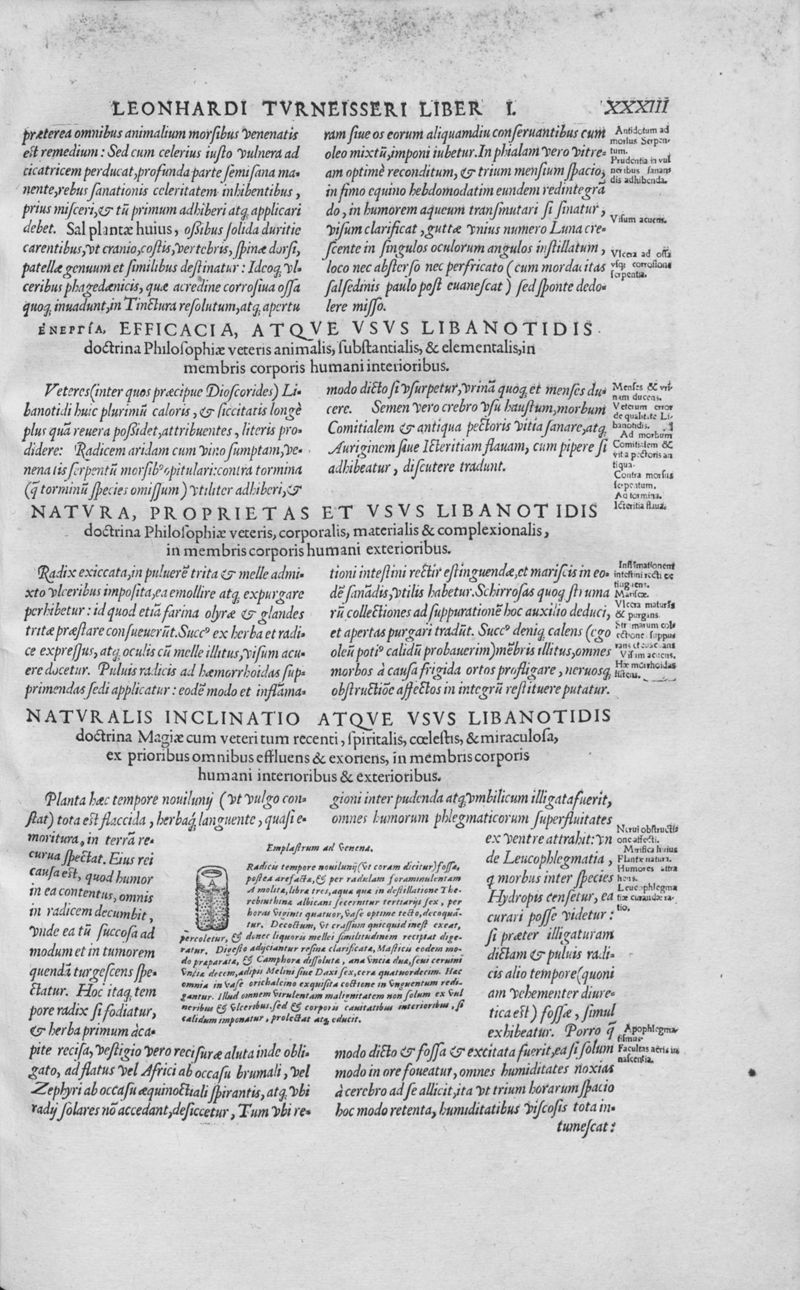 LEONHARDI TVRNEISSERI LIBER I. XXXIII
præterea omnibus animalium morſibus venenatis
est remedium : Sed cum celerius iuſto vulnera ad
cicatricem perducat, profunda parte ſemiſana ma-
nente, rebus ſanationis celeritatem inhibentibus,
prius miſceri, & tū primum adhiberi atq; applicari
debet. Sal plantæ huius, oſſibus ſolida duritie
carentibus, vt cranio, coſtis, vertebris, ſpinæ dorſi,
patellæ genuum et ſimilibus deſtinatur : Ideoq; vl-
ceribus phagedænicis, quæ acredine corroſiua oſſa
quoq; inuadunt, in Tinctura reſolutum, atq; apertu
ram ſiue os eorum aliquamdiu conſeruantibus cum
oleo mixtū, imponi iubetur. In phialam vero vitre-
am optimè reconditum, & trium menſium ſpacio,
in fimo equino hebdomodatim eundem redintegrā
do, in humorem aqueum tranſmutari ſi ſinatur,
viſum clarificat, guttæ vnius numero Luna cre-
ſcente in ſingulos oculorum angulos inſtillatum,
loco nec abſterſo nec perfricato (cum mordacitas
ſalſedinis paulo poſt euaneſcat) ſed ſponte dedo-
lere miſſo.
Antidotum ad
morſus Serpen-
tum.
Prudentia in vul
neribus ſanan
dis adhibenda.
Viſum acuens.
Vlcera ad oſſa
vſq; corroſione
ſerpentia.
ἐνεργία, EFFICACIA, ATQVE VSVS LIBANOTIDIS
doctrina Philoſophiæ veteris animalis, ſubſtantialis, & elementalis, in
membris corporis humani interioribus.
Veteres (inter quos præcipue Dioſcorides) Li-
banotidi huic plurimū caloris, & ſiccitatis longè
plus quā reuera poſſidet, attribuentes, literis pro-
didere: Radicem aridam cum vino ſumptam, ve-
nenatis ſerpentū morſibꝰ opitulari: contra tormina
(q̄ torminū ſpecies omiſſum) vtiliter adhiberi, &
modo dicto ſi vſurpetur, vrinā quoq; et menſes du-
cere. Semen vero crebro vſu hauſtum, morbum
Comitialem & antiqua pectoris vitia ſanare, atq;
Auriginem ſiue Icteritiam flauam, cum pipere ſi
adhibeatur, diſcutere tradunt.
Menſes & vri-
nam ducens.
Veterum error
de qualitate Li-
banotidis.
Ad morbum
Comitialem &
vitia pectoris an
tiqua.
Contra morſus
ſerpentum.
Ad tormina.
Icteritia flaua.
NATVRA, PROPRIETAS ET VSVS LIBANOTIDIS
doctrina Philoſophiæ veteris, corporalis, materialis & complexionalis,
in membris corporis humani exterioribus.
Radix exiccata, in puluerē trita & melle admi-
xto vlceribus impoſita, ea emollire atq; expurgare
perhibetur : id quod etiā farina olyræ & glandes
tritæ præſtare conſueuerūt. Succꝰ ex herba et radi-
ce expreſſus, atq; oculis cū melle illitus, viſum acu-
ere docetur. Puluis radicis ad hæmorrhoidas ſup-
primendas ſedi applicatur : eodē modo et inflāma-
tioni inteſtini recti reſtinguendæ, et mariſcis in eo-
dē ſanādis, vtilis habetur. Schirroſas quoq; ſtruma
rū collectiones ad ſuppurationē hoc auxilio deduci,
et apertas purgari tradūt. Succꝰ deniq; calens (ego
oleū potiꝰ calidū probauerim) mēbris illitus, omnes
morbos à cauſa frigida ortos profligare, neruosq;
obſtructiōe affectos in integrū reſtituere putatur.
Inflāmationem
inteſtini recti re
ſtinguens.
Mariſcæ.
Vlcera maturās
& purgans.
Strumarum coll
ectione ſuppu
Viſum acuens.
Hæmorrhoidas
ſiſtens.
NATVRALIS INCLINATIO ATQVE VSVS LIBANOTIDIS
doctrina Magiæ cum veteri tum recenti, ſpiritalis, cœleſtis, & miraculoſa,
ex prioribus omnibus effluens & exoriens, in membris corporis
humani interioribus & exterioribus.
Planta hæc tempore nouilunij (vt vulgo con-
ſtat) tota est flaccida, herbaq; languente, quaſi e-
moritura, in terrā re-
curua ſpectat. Eius rei
cauſa eſt, quod humor
in ea contentus, omnis
in radicem decumbit,
vnde ea tū ſuccoſa ad
modum et in tumorem
quendā turgeſcens ſpe-
ctatur. Hoc itaq; tem
pore radix ſi fodiatur,
& herba primum à ca-
pite reciſa, veſtigio vero reciſuræ aluta inde obli-
gato, ad flatus vel Africi ab occaſu brumali, vel
Zephyri ab occaſu æquinoctiali ſpirantis, atq; vbi
radij ſolares nō accedant, deſiccetur, Tum vbi re-
Emplaſtrum ad Venena.
Radicis tempore nouilunij (vt coram dicitur) foſſæ,
poſtea arefactæ, & per radulam foraminulentam
A molitæ, libræ tres, aqua quæ in deſtillatione The-
rebinthinæ albicans ſecernitur tertiarijs ſex, per
horas viginti quatuor, vaſe optime tecto, decoquā-
tur. Decoctum, vt craſſum quicquid ineſt exeat,
percoletur, & donec liquoris mellei ſimilitudinem recipiat dige-
ratur. Digeſto adijciantur reſinæ clarificatæ, Maſtices eodem mo-
do præparatæ, & Camphoræ diſſolutæ, ana vnciæ duæ, ſeui ceruini
vnciæ decem, adipis Melini ſiue Daxi ſex, ceræ quatuordecim. Hæc
omnia in vaſe orichalcino exquiſita coctione in vnguentum redi-
gantur. Illud omnem virulentam malignitatem non ſolum ex vul
neribus & vlceribus, ſed & corporis cauitatibus interioribus, ſi
calidum imponatur, prolectat atq; educit.
gioni inter pudenda atq; vmbilicum illigata fuerit,
omnes humorum phlegmaticorum ſuperfluitates
ex ventre attrahit: vn
de Leucophlegmatia,
q̄ morbus inter ſpecies
Hydropis cenſetur, ea
curari poſſe videtur :
ſi præter illigaturam
dictam & puluis radi-
cis alio tempore (quoni
am vehementer diure-
tica eſt) foſſæ, ſimul
exhibeatur. Porro q̄
modo dicto & foſſa & excitata fuerit, ea ſi ſolum
modo in ore foueatur, omnes humiditates noxias
à cerebro ad ſe allicit, ita vt trium horarum ſpacio
hoc modo retenta, humiditatibus viſcoſis tota in-
tumeſcat :
Nerui obſtructi
one affecti.
Mirifica huius
Plantæ natura.
Humores attra
hens.
Leucophlegma
tiæ curandæ ra-
tio.
Apophlegma-
tiſmus.
Facultas aëris in
naſcentia.